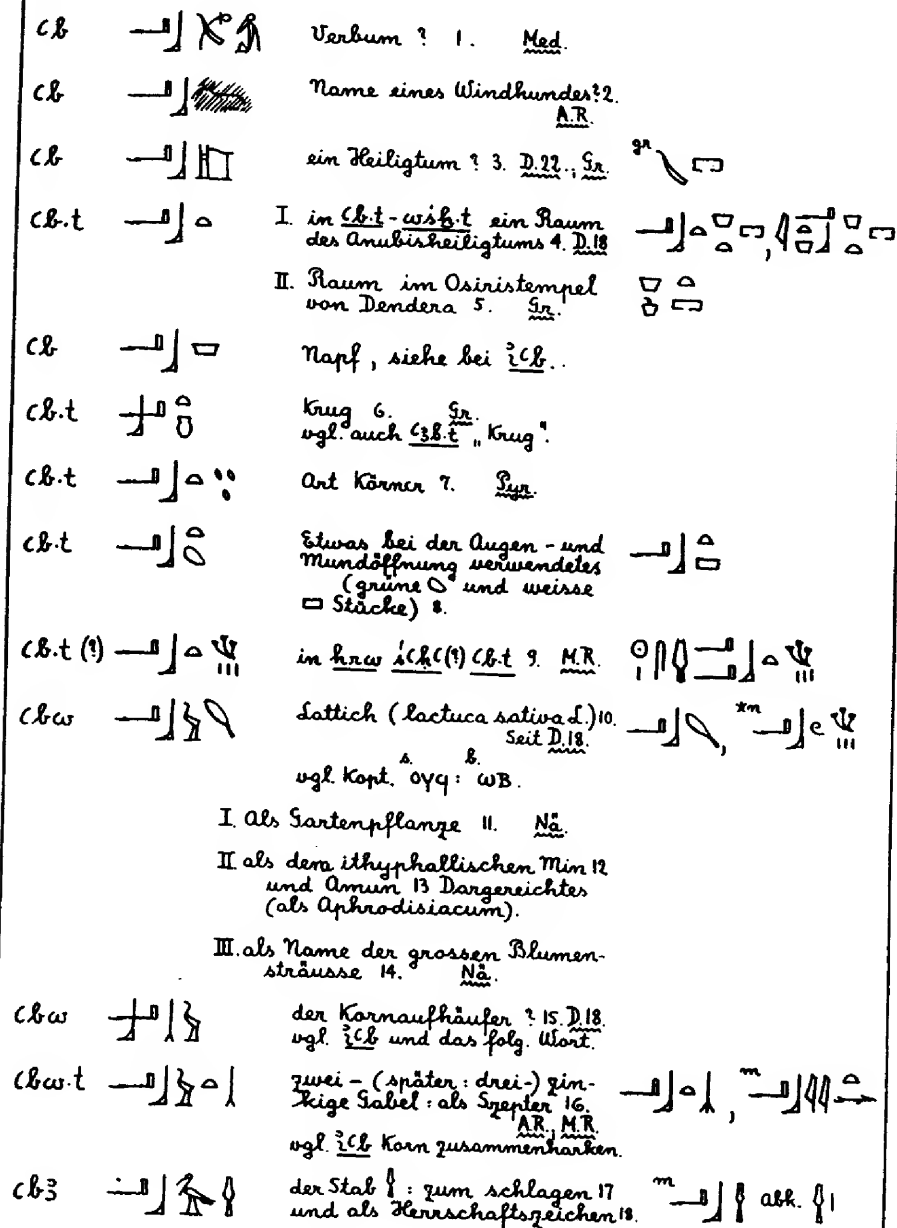 ꜥb Verbum ? 1. Med.
ꜥb Name eines Windhundes? 2.
A.R.
ꜥb ein Heiligtum ? 3. D.22., Gr. gr
ꜥb.t I. in ꜥb.t-wśḫ.t ein Raum
des Anubisheiligtums 4. D.18
II. Raum im Osiristempel
von Dendera 5. Gr.
ꜥb Napf, siehe bei i҆ꜥb..
ꜥb.t Krug 6. Gr.
vgl. auch ꜥꜣb.t „Krug".
ꜥb.t Art Körner 7. Pyr.
ꜥb.t Etwas bei der Augen- und
Mundöffnung verwendetes
(grüne und weisse
Stücke) 8.
ꜥb.t (?) in hrw śꜥḥꜥ(?) ꜥb.t 9. M.R.
ꜥbw Lattich (lactuca sativa L.) 10.
Seit D.18. *m
s. b.
vgl. Kopt. ⲟⲩϥ : ⲱⲃ.
I. Als Gartenpflanze 11. Nä.
II als dem ithyphallischen Min 12
und Amun 13 Dargereichtes
(als Aphrodisiacum).
III. als Name der grossen Blumen-
sträusse 14. Nä.
ꜥbw der Kornaufhäufer ? 15. D.18.
vgl. i҆ꜥb und das folg. Wort.
ꜥbw.t zwei- (später: drei-) zin-
kige Gabel: als Szepter 16. m
A.R., M.R.
vgl. i҆ꜥb Korn zusammenharken.
ꜥbꜣ der Stab : zum schlagen 17 m abk.
und als Herrschaftszeichen 18.